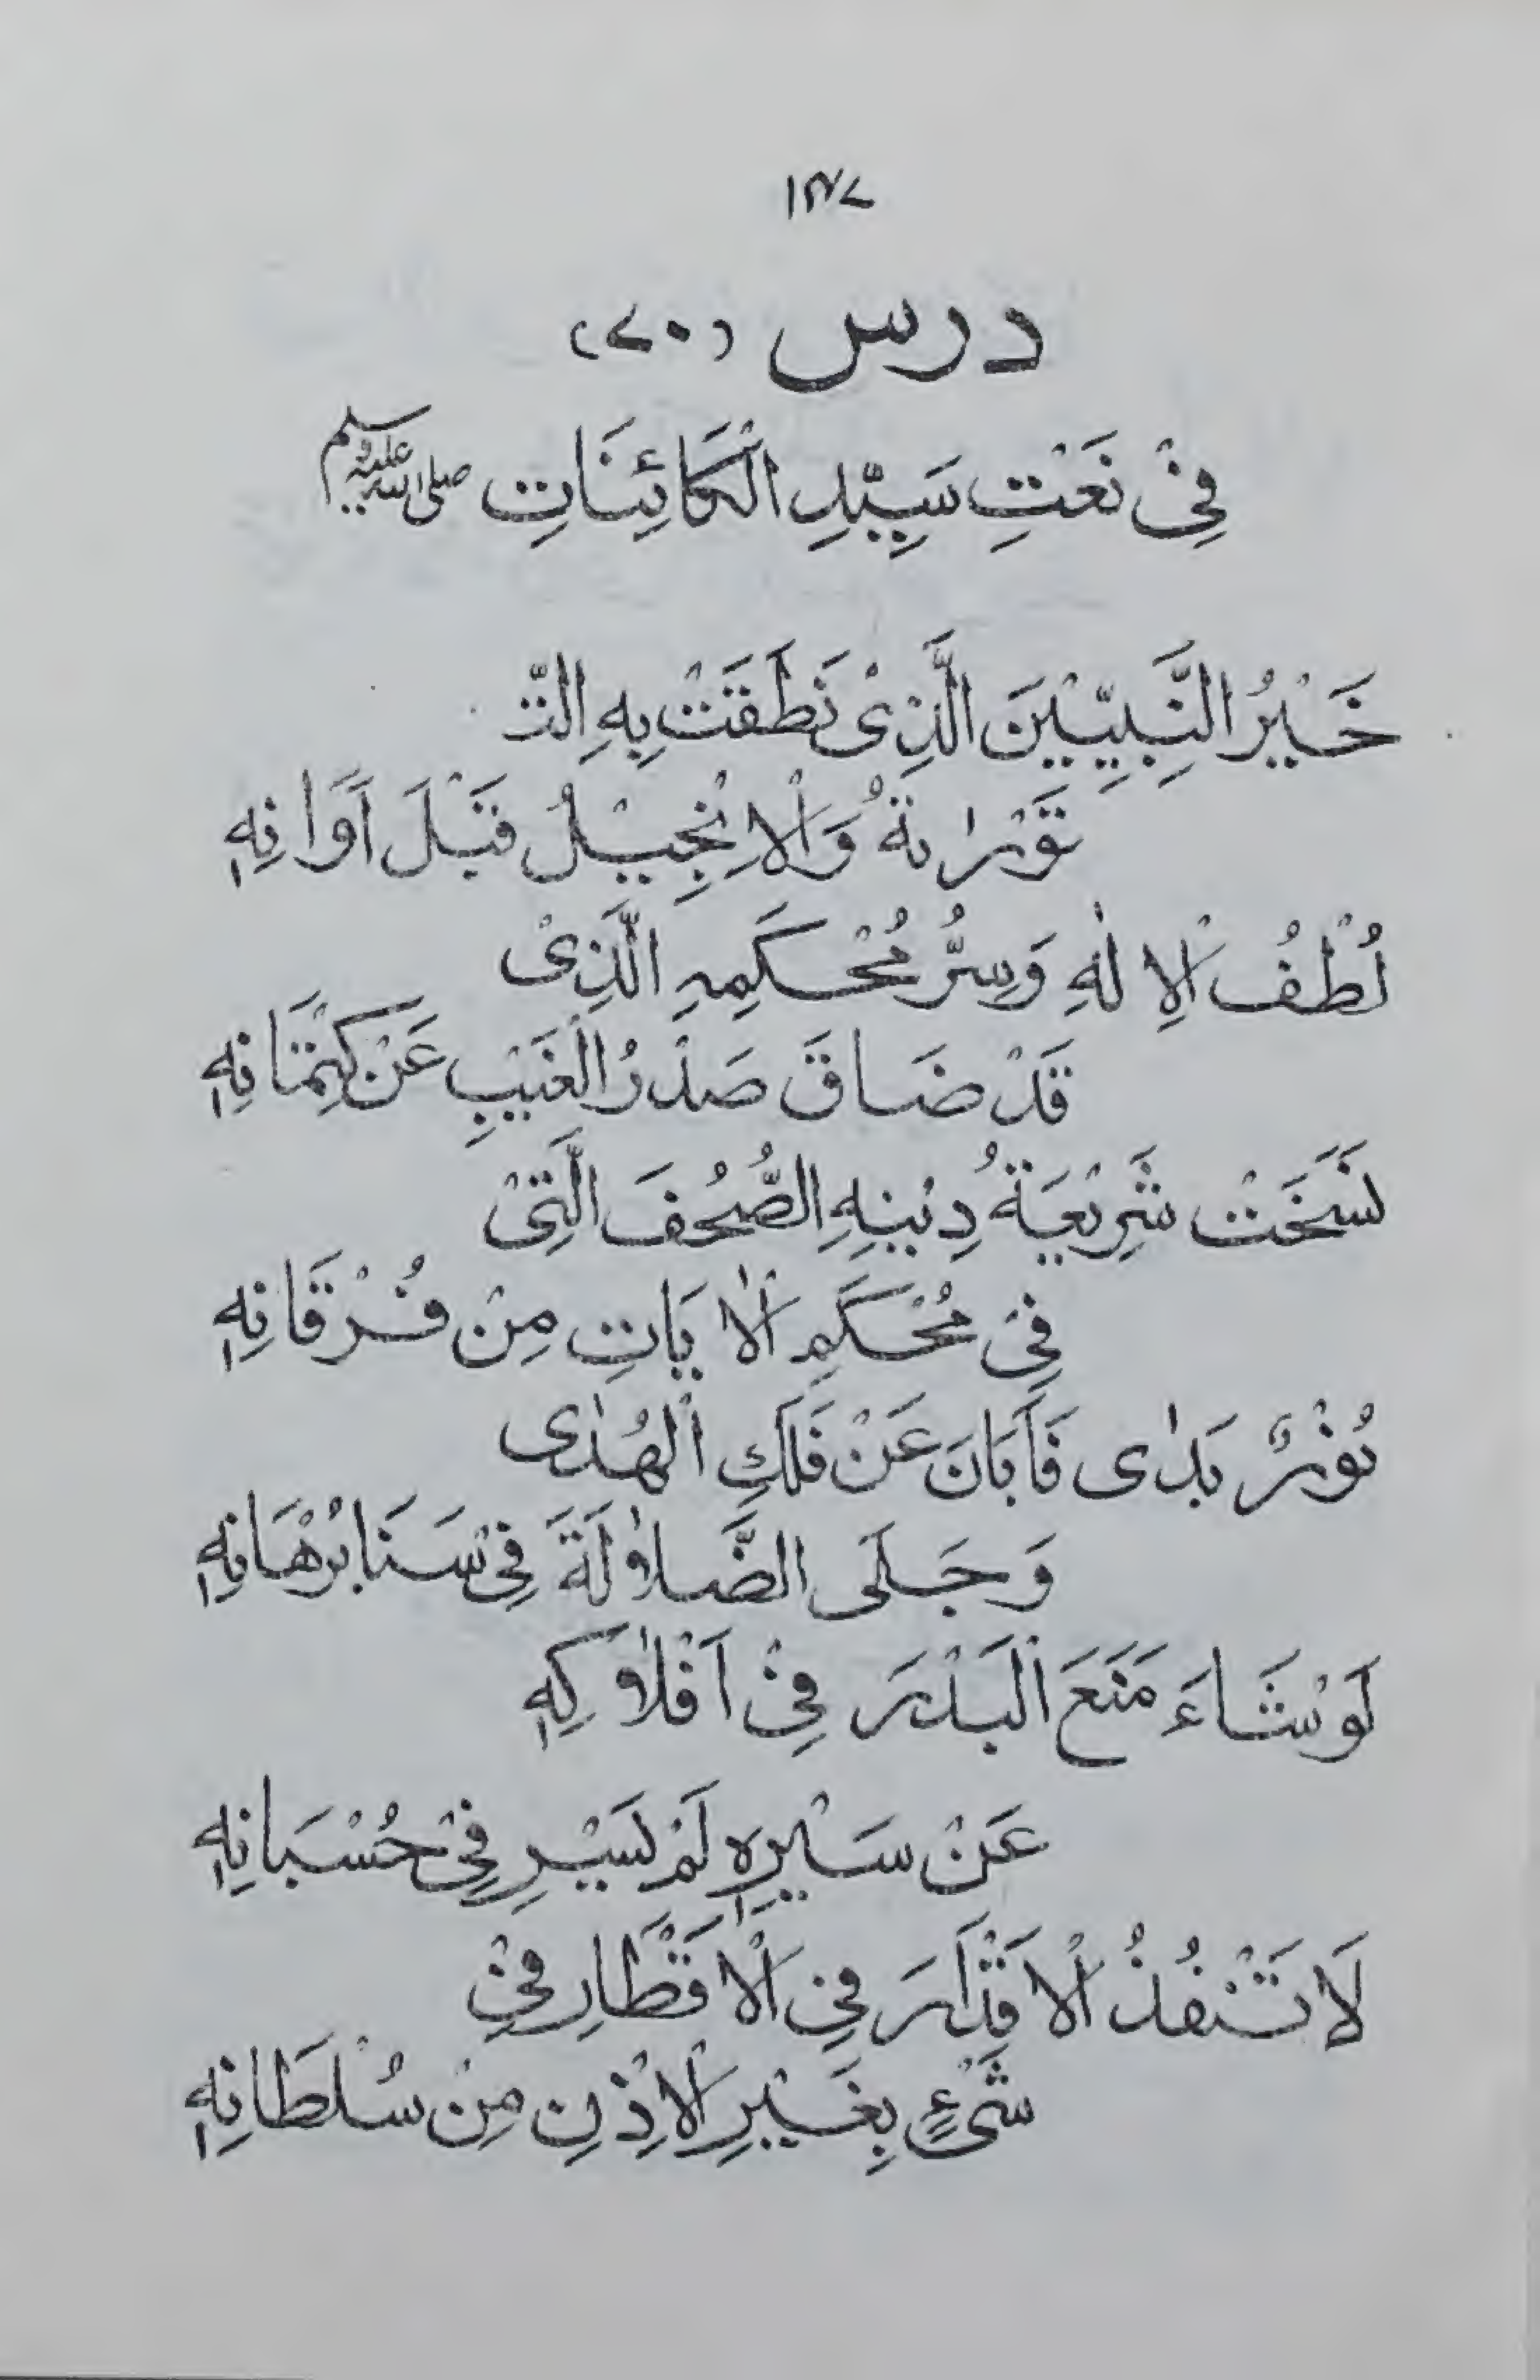 ۱۴۷
درس (۷۰)
فِیْ نَعْتِ سَیِّدِ الْکَائِنَاتِ ﷺ
خَیْرُ النَّبِیِّیْنَ الَّذِیْ نَطَقَتْ بِهِ التّـ
ـتَوْرٰىةُ وَالْاِنْجِیْلُ قَبْلَ اَوَانِهٖ
لُطْفُ الْاِلٰهِ وَسِرُّ مُحْکَمِهِ الَّذِیْ
قَدْ ضَاقَ صَدْرُ الْغَیْبِ عَنْ کِتْمَانِهٖ
نَسَخَتْ شَرِیْعَةُ دِیْنِهِ الصُّحُفَ الَّتِیْ
فِیْ مُحْکَمِ الْاٰیَاتِ مِنْ فُرْقَانِهٖ
نُوْرٌ بَدٰى فَاَبَانَ عَنْ فَلَكِ الْهُدٰى
وَجَلَى الضَّلٰولَةَ فِیْ سَنَا بُرْهَانِهٖ
لَوْ شَاءَ مَنَعَ الْبَدْرَ فِیْ اَفْلٰوكِهٖ
عَنْ سَیْرِهٖ لَمْ یَسْرِ فِیْ حُسْبَانِهٖ
لَا تَنْفُذُ الْاَقْدَارَ فِی الْاَقْطَارِ فِیْ
شَیْءٍ بِغَیْرِ الْاِذْنِ مِنْ سُلْطَانِهٖ